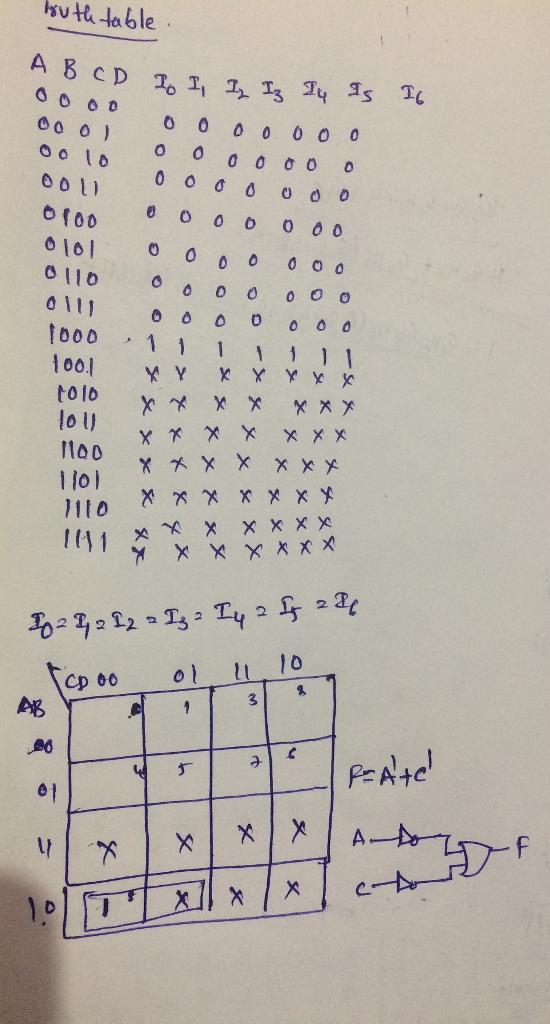 truth table
A B C D I0 I1 I2 I3 I4 I5 I6
0 0 0 0
0 0 0 1 0 0 0 0 0 0 0
0 0 1 0 0 0 0 0 0 0 0
0 0 1 1 0 0 0 0 0 0 0
0 1 0 0 0 0 0 0 0 0 0
0 1 0 1 0 0 0 0 0 0 0
0 1 1 0 0 0 0 0 0 0 0
0 1 1 1 0 0 0 0 0 0 0
1 0 0 0 1 1 1 1 1 1 1
1 0 0 1 x x x x x x x
1 0 1 0 x x x x x x x
1 0 1 1 x x x x x x x
1 1 0 0 x x x x x x x
1 1 0 1 x x x x x x x
1 1 1 0 x x x x x x x
1 1 1 1 x x x x x x x
I0 = I1 = I2 = I3 = I4 = I5 = I6
CD 00 01 11 10
AB
00 0 1 3 2
01 4 5 7 6
11 x x x x
10 1 8 x x x
F = A' + C'
A F
C